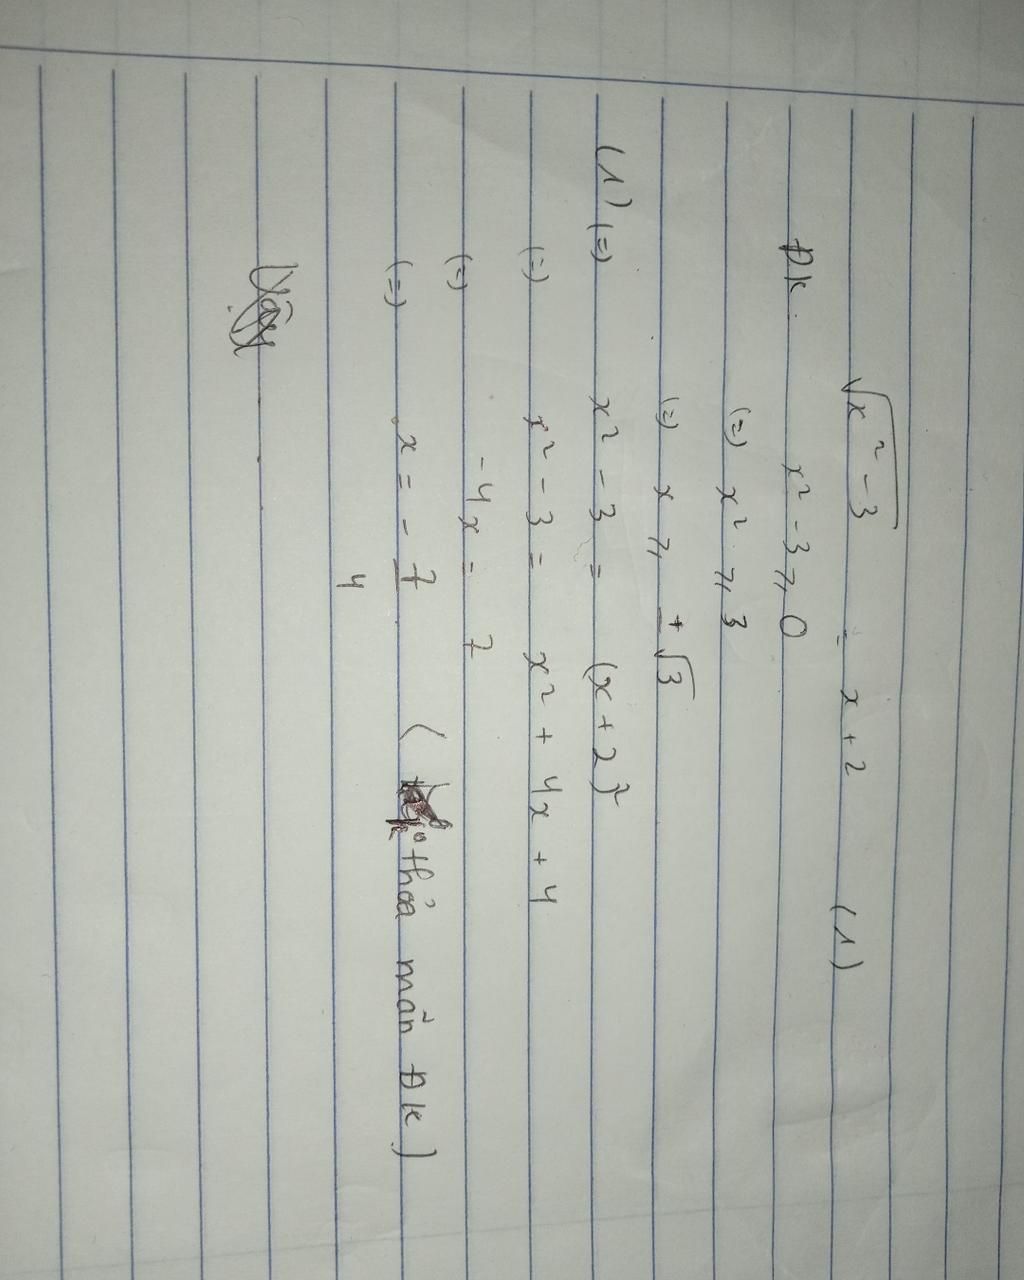 √x² - 3 = x + 2 (1)
Đk. x² - 3 ⩾ 0
(=) x² ⩾ 3
(=) x ⩾ ±√3
(1) (=) x² - 3 = (x + 2)²
(=) x² - 3 = x² + 4x + 4
(=) -4x = 7
(=) x = - 7/4 ( thỏa mãn Đk)
Vậy